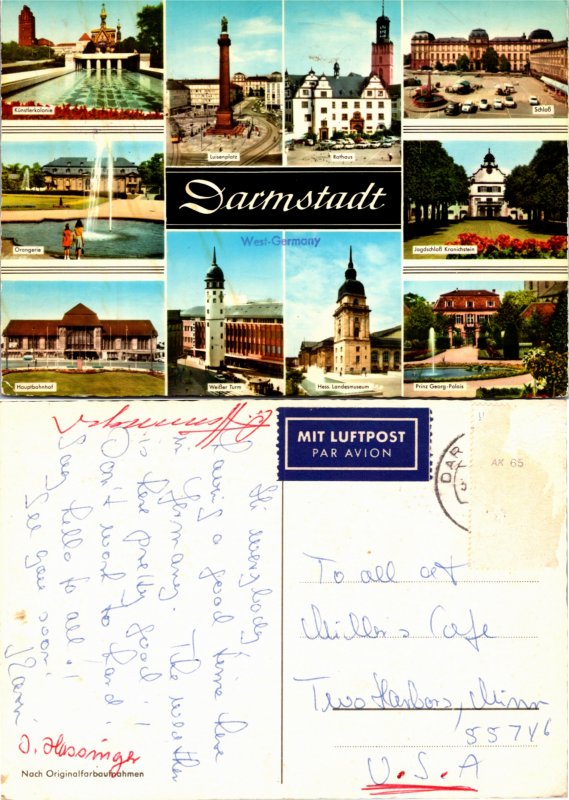 Künstlerkolonie
Luisenplatz
Rathaus
Schloß
Orangerie
Darmstadt
West-Germany
Jagdschloß Kranichstein
Hauptbahnhof
Weißer Turm
Hess. Landesmuseum
Prinz Georg-Palais
MIT LUFTPOST
PAR AVION
DAR
Hi everybody!
Having a good time here
in Germany. The weather
is here pretty good!
Can't work to hard!
Say hello to all!
See you soon!
Karin
J. Hassinger
To all at
Miller's Cafe
Two Harbors, Minn
55746
U.S.A
Nach Originalfarbaufnahmen